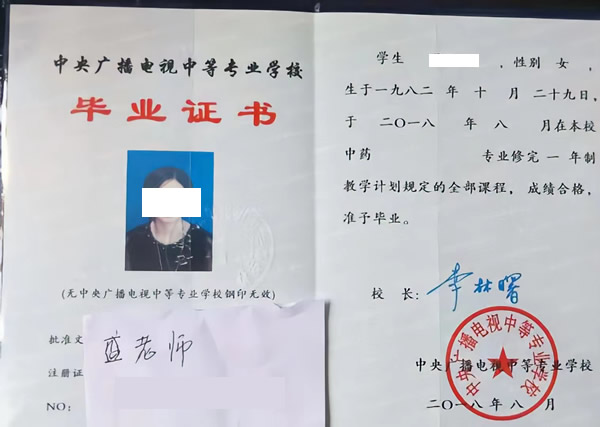 中央广播电视中等专业学校
毕业证书
(无中央广播电视中等专业学校钢印无效)
批准文
注册证
NO:
老师
学生 ,性别 女,
生于一九八二 年 十 月 二十九日,
于 二〇一八 年 八 月在本校
中药 专业修完 一 年制
教学计划规定的全部课程, 成绩合格,
准予毕业。
校 长: 李林曙
中央广播电视中等专业学校
中央广播电视中等专业学校
二〇一八 年 八 月